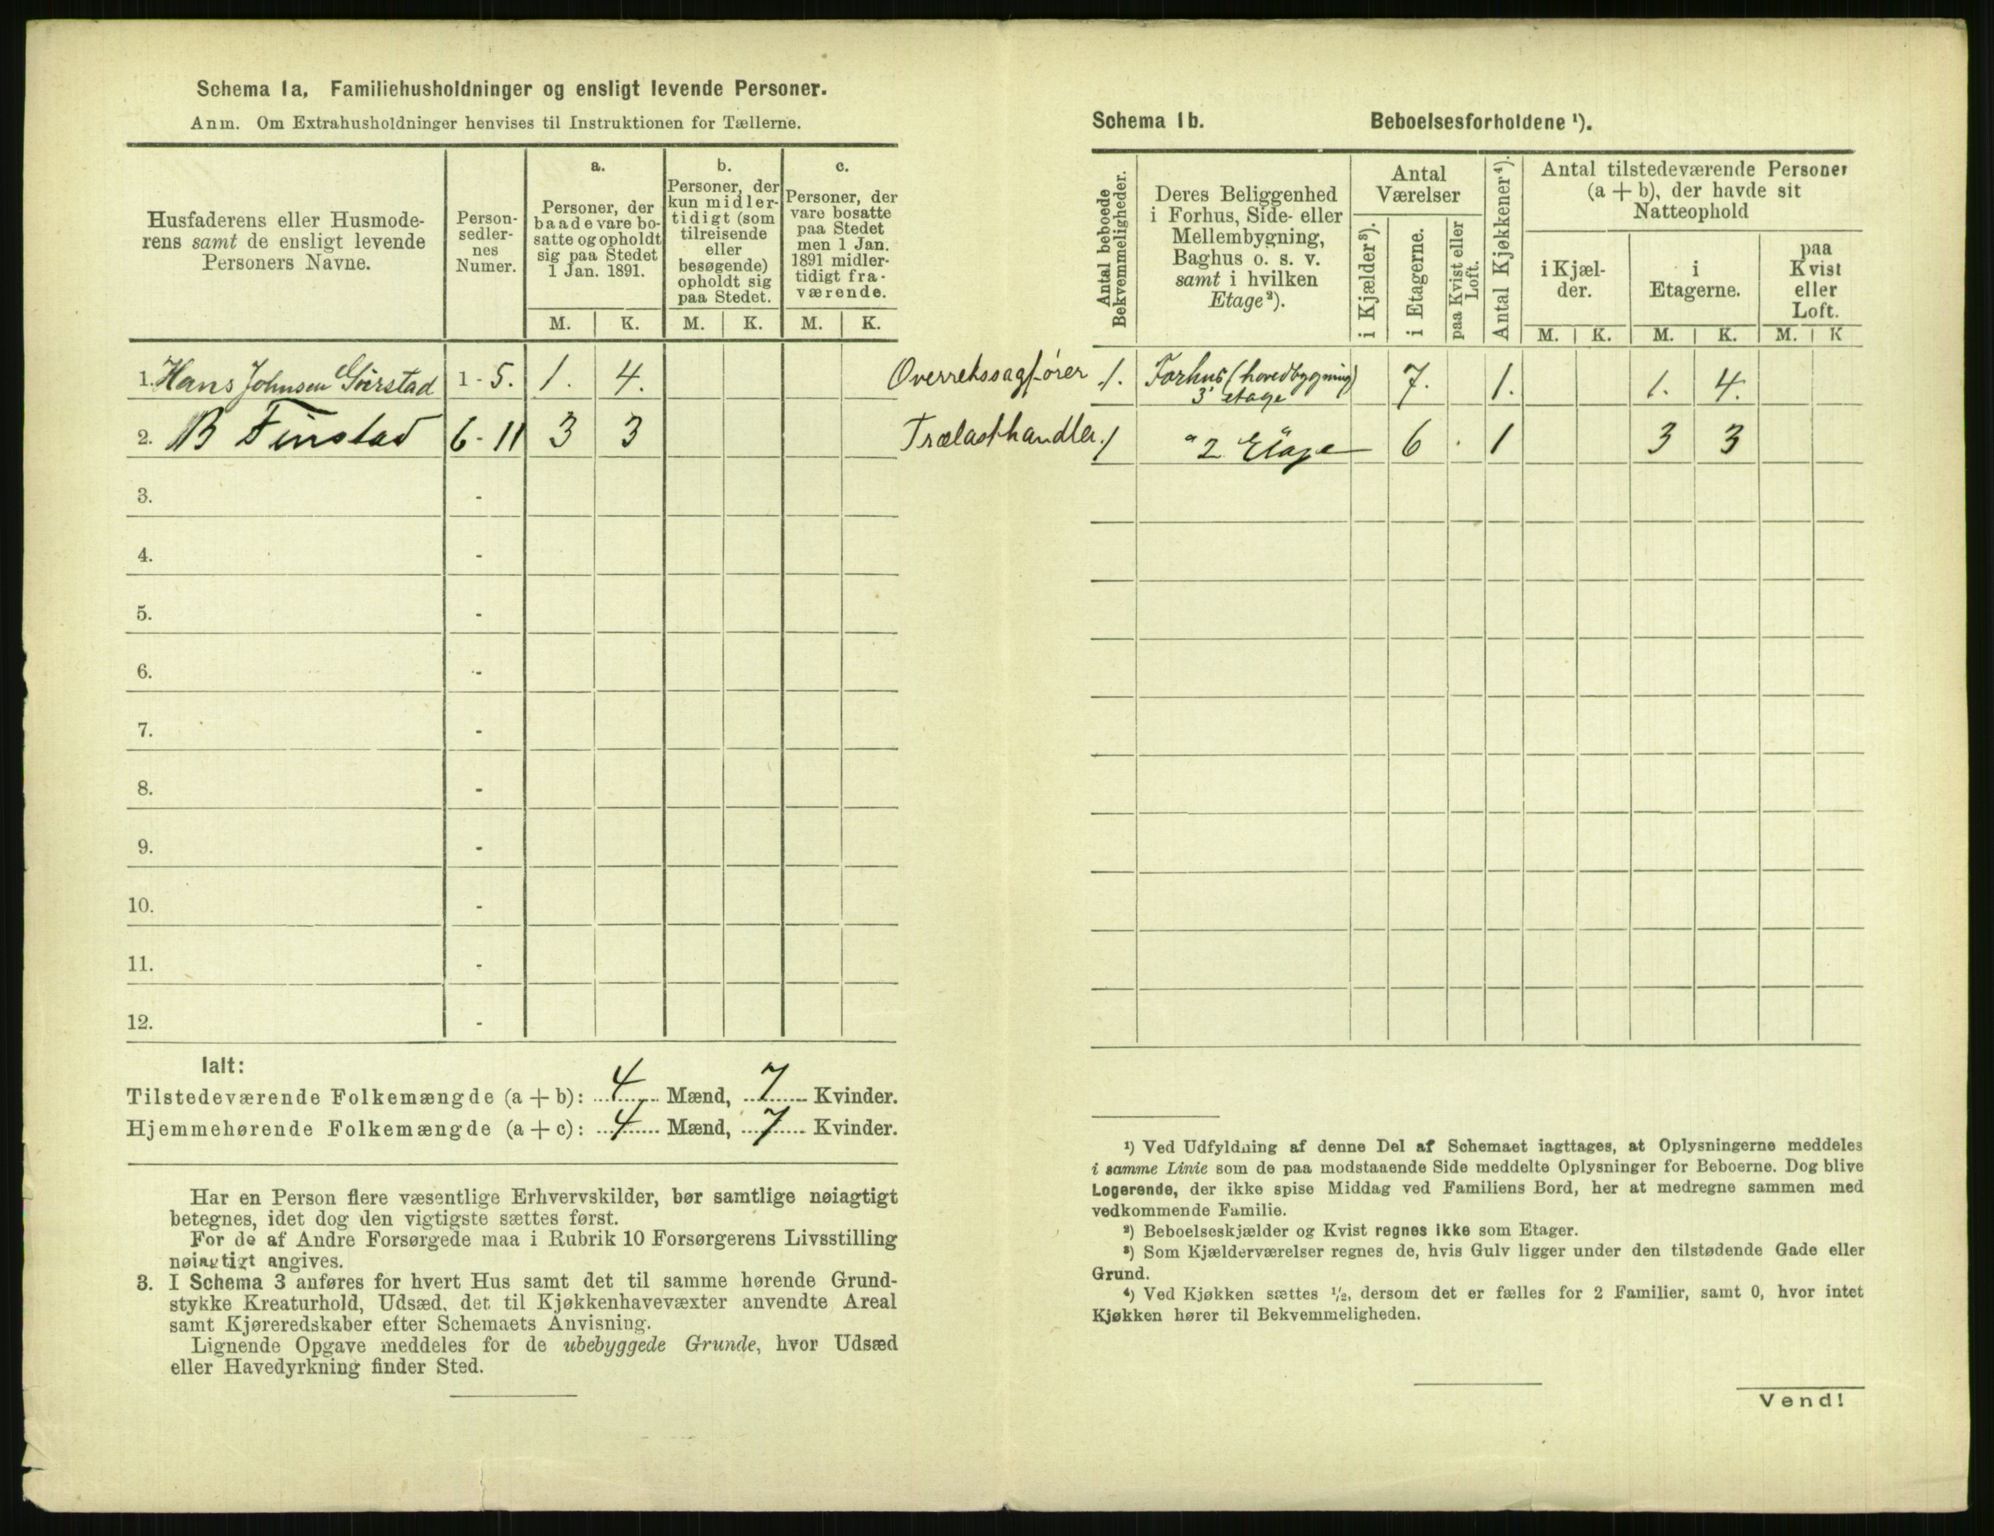 Schema 1a, Familiehusholdninger og ensligt levende Personer.
Anm. Om Extrahusholdninger henvises til Instruktionen for Tællerne.
Husfaderens eller Husmode-
rens samt de ensligt levende
Personers Navne.
Person-
sedler-
nes
Numer.
a.
Personer, der
baade vare bo-
satte og opholdt
sig paa Stedet
1 Jan. 1891.
b.
Personer, der
kun midler-
tidigt (som
tilreisende
eller
besøgende)
opholdt sig
paa Stedet.
c.
Personer, der
vare bosatte
paa Stedet
men 1 Jan.
1891 midler-
tidigt fra-
værende.
M. K. M. K. M. K.
1. Hans Johnsen Gierstad 1 - 5. 1. 4. Overretssagfører
2. B Finstad 6 - 11 3 3 Trælasthandler.
3. -
4. -
5. -
6. -
7. -
8. -
9. -
10. -
11. -
12. -
Ialt:
Tilstedeværende Folkemængde (a + b): 4 Mænd, 7 Kvinder.
Hjemmehørende Folkemængde (a + c): 4 Mænd, 7 Kvinder.
Har en Person flere væsentlige Erhvervskilder, bør samtlige nøiagtigt
betegnes, idet dog den vigtigste sættes først.
For de af Andre Forsørgede maa i Rubrik 10 Forsørgerens Livsstilling
nøiagtigt angives.
3. I Schema 3 anføres for hvert Hus samt det til samme hørende Grund-
stykke Kreaturhold, Udsæd, det til Kjøkkenhavevæxter anvendte Areal
samt Kjøreredskaber efter Schemaets Anvisning.
Lignende Opgave meddeles for de ubebyggede Grunde, hvor Udsæd
eller Havedyrkning finder Sted.
Schema 1b. Beboelsesforholdene ¹).
Antal beboede
Bekvemmeligheder.
Deres Beliggenhed
i Forhus, Side- eller
Mellembygning,
Baghus o. s. v.
samt i hvilken
Etage²).
Antal
Værelser
i Kjælder³).
i Etagerne.
paa Kvist eller
Loft.
Antal Kjøkkener⁴).
Antal tilstedeværende Personer
(a + b), der havde sit
Natteophold
i Kjæl-
der.
i
Etagerne.
paa
Kvist
eller
Loft.
M. K. M. K. M. K
1. Forhus (hovedbygning) 7. 1. 1. 4.
3' etage
1 " 2 Etage 6 . 1 3 3
¹) Ved Udfyldning af denne Del af Schemaet iagttages, at Oplysningerne meddeles
i samme Linie som de paa modstaaende Side meddelte Oplysninger for Beboerne. Dog blive
Logerende, der ikke spise Middag ved Familiens Bord, her at medregne sammen med
vedkommende Familie.
²) Beboelseskjælder og Kvist regnes ikke som Etager.
³) Som Kjælderværelser regnes de, hvis Gulv ligger under den tilstødende Gade eller
Grund.
⁴) Ved Kjøkken sættes ½, dersom det er fælles for 2 Familier, samt 0, hvor intet
Kjøkken hører til Bekvemmeligheden.
Vend!